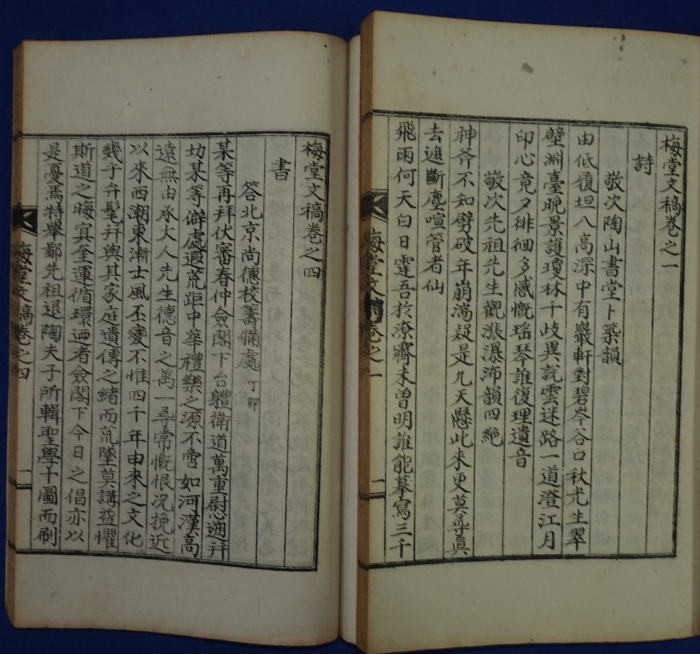 梅堂文稿卷之一
詩
敬次陶山書堂卜築韻
由低復坦八高深中有巖軒對碧岑谷口秋光生翠
壁淵臺晩景護瓊林千歧異説雲迷路一道澄江月
印心竟夕徘徊多感慨瑤琴誰復理遺音
敬次先祖先生觀漲瀑沛韻四絶
神斧不知劈破年崩湍疑是九天懸此來更莫尋眞
去遮斷塵喧管者仙
飛雨何天白日霆吾於潦霽未曾明誰能摹寫三千
梅堂文稿卷之一
一
梅堂文稿卷之四
書
答北京尚德校籌備處 丁卯
某等再拜伏審春仲僉閣下台軆衛道萬重慰遡幷
切某等僻處遐荒距中華禮樂之源不啻如河漢高
遠無由承大人先生德音之萬一尋常慨恨况挽近
以來西潮東漸士風丕變不惟四千年由來之文化
幾乎弁髦幷與其家庭遺傳之緖而荒墜莫講益懼
斯道之晦冥全運循環迺者僉閣下今日之倡亦以
是憂焉特舉鄙先祖退陶夫子所輯聖學十圖而刷
梅堂文稿卷之四
一